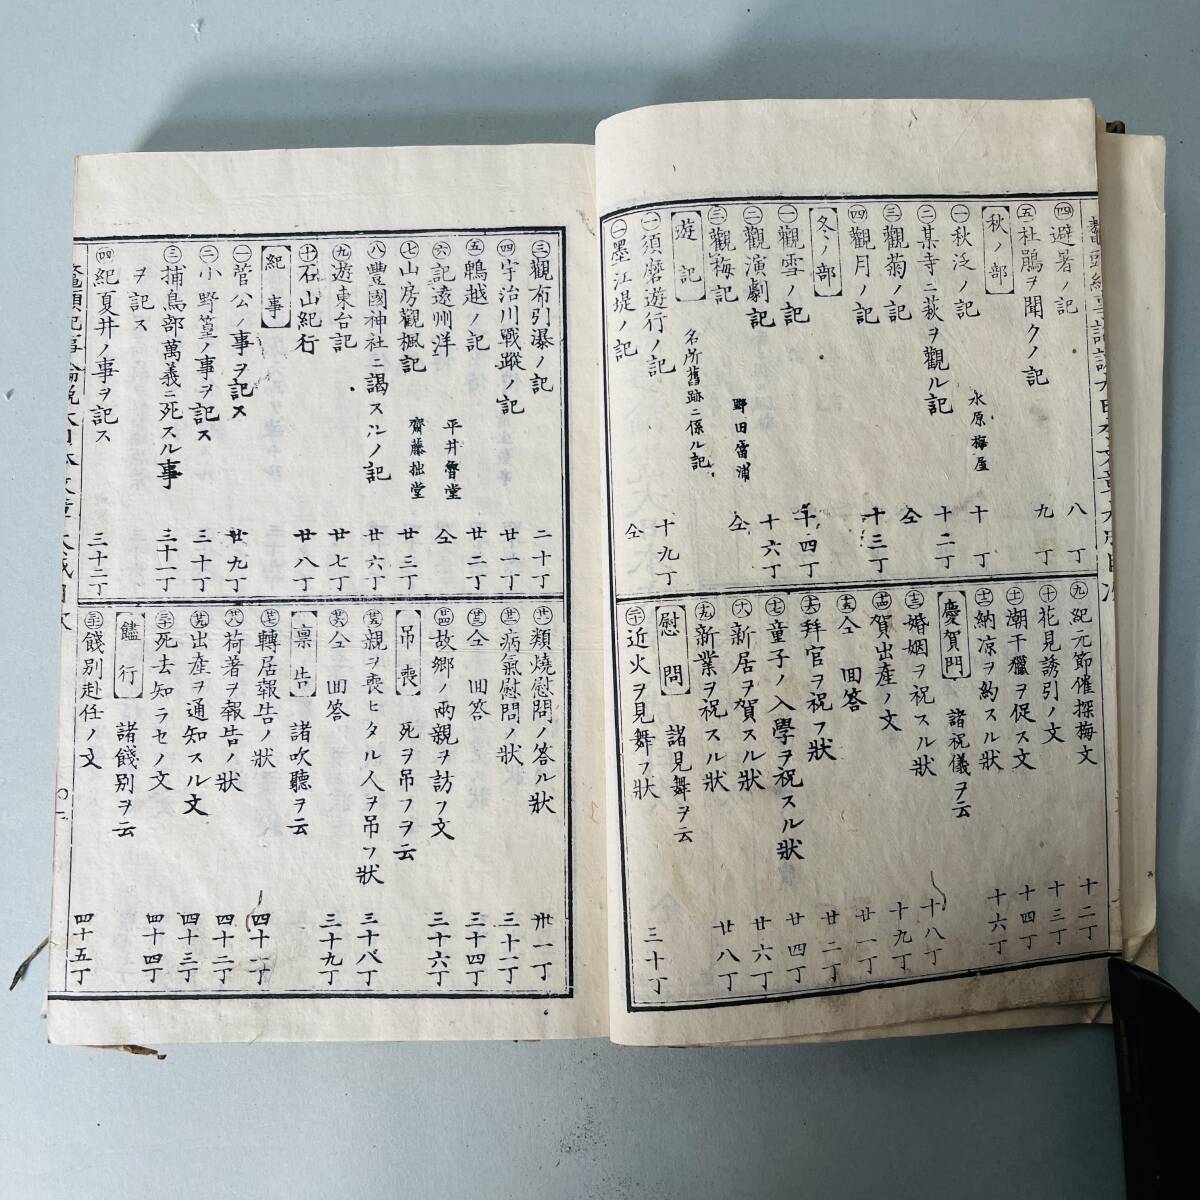 ㊃避暑ノ記 八丁
㊄杜鵑ヲ聞クノ記 九丁
秋ノ部
㊀秋泛ノ記 水原梅屋 十丁
㊁某寺ニ萩ヲ觀ル記 十二丁
㊂觀菊ノ記 仝
㊃觀月ノ記 十三丁
冬ノ部
㊀觀雪ノ記 十四丁
㊁觀演劇記 十六丁
㊂觀梅記 野田笛浦 仝
遊記 名所舊跡ニ係ル記
㊀須磨遊行ノ記 十九丁
㊁墨江堤ノ記 仝
㊈紀元節催探梅文 十二丁
㊉花見誘引ノ文 十三丁
潮干獵ヲ促ス文 十四丁
納凉ヲ約スル狀 十六丁
慶賀門 諸祝儀ヲ云
婚姻ヲ祝スル狀 十八丁
賀出產ノ文 十九丁
仝 回答 廿一丁
拜官ヲ祝フ狀 廿二丁
童子ノ入學ヲ祝スル狀 廿四丁
新居ヲ賀スル狀 廿六丁
新業ヲ祝スル狀 廿八丁
慰問 諸見舞ヲ云
近火ヲ見舞フ狀 三十丁
㊂觀布引瀑ノ記 二十丁
㊃宇治川戰蹤ノ記 廿一丁
㊄鵯越ノ記 廿二丁
㊅記遠州洋 平井魯堂 仝
㊆山房觀楓記 齋藤拙堂 廿三丁
㊇豐國神社ニ謁スルノ記 廿六丁
㊈遊東台記 廿七丁
㊉石山紀行 廿八丁
紀事
㊀菅公ノ事ヲ記ス 廿九丁
㊁小野篁ノ事ヲ記ス 三十丁
㊂捕鳥部萬義ニ死スル事
ヲ記ス 三十一丁
㊃紀夏井ノ事ヲ記ス 三十二丁
類燒慰問ノ答ル狀 卅一丁
病氣慰問ノ狀 三十二丁
仝 回答 三十四丁
故鄉ノ兩親ヲ訪フ文 三十六丁
吊喪 死ヲ吊フヲ云
親ヲ喪ヒタル人ヲ吊フ狀 三十八丁
仝 回答 三十九丁
禀告 諸吹聽ヲ云
轉居報告ノ狀 四十一丁
荷著ヲ報告ノ狀 四十二丁
出產ヲ通知スル文 四十三丁
死去知ラセノ文 四十四丁
饐行 諸餞別ヲ云
餞別赴任ノ文 四十五丁